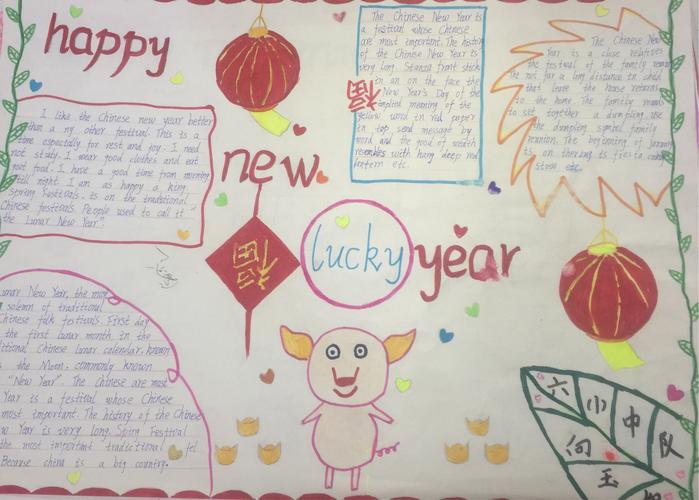 happy
new
lucky
year
I like the Chinese new year better
than a ny other festival. This is a
time especially for rest and joy. I need
not study. I wear good clothes and eat
good food. I have a good time from morning
till night. I am as happy a king.
Spring festivals. is on the traditional
Chinese festivals. People used to call it "
the Lunar New Year".
The Chinese New Year is
a festival whose Chinese
are most important. The history
of the Chinese New Year is
very long. front stick
in an on the face the
New Year's Day of the
meaning of the
yellow word in red paper
in top send message by
word and the good of wealth
resembles with hang deep red
lantern etc.
福
The Chinese New
Year is a close relatives
the festival of the family
The not far a long distance
that leave the house returns
to the home. The family
to sit together a dumpling, use
the dumpling symbol family
reunion. The beginning of January
is on
stove etc.
福
unar New Year, the most
solemn of traditional
Chinese folk festivals. First day
the first lunar month in the
ditional Chinese lunar calendar. known
the Moon. commonly known
"New Year". The Chinese are most
Year is a festival whose Chinese
most important. The history of the Chinese
w Year is very long. Spring Festival
the most important traditional fel
Because china is a big country.
六小中队
向玉